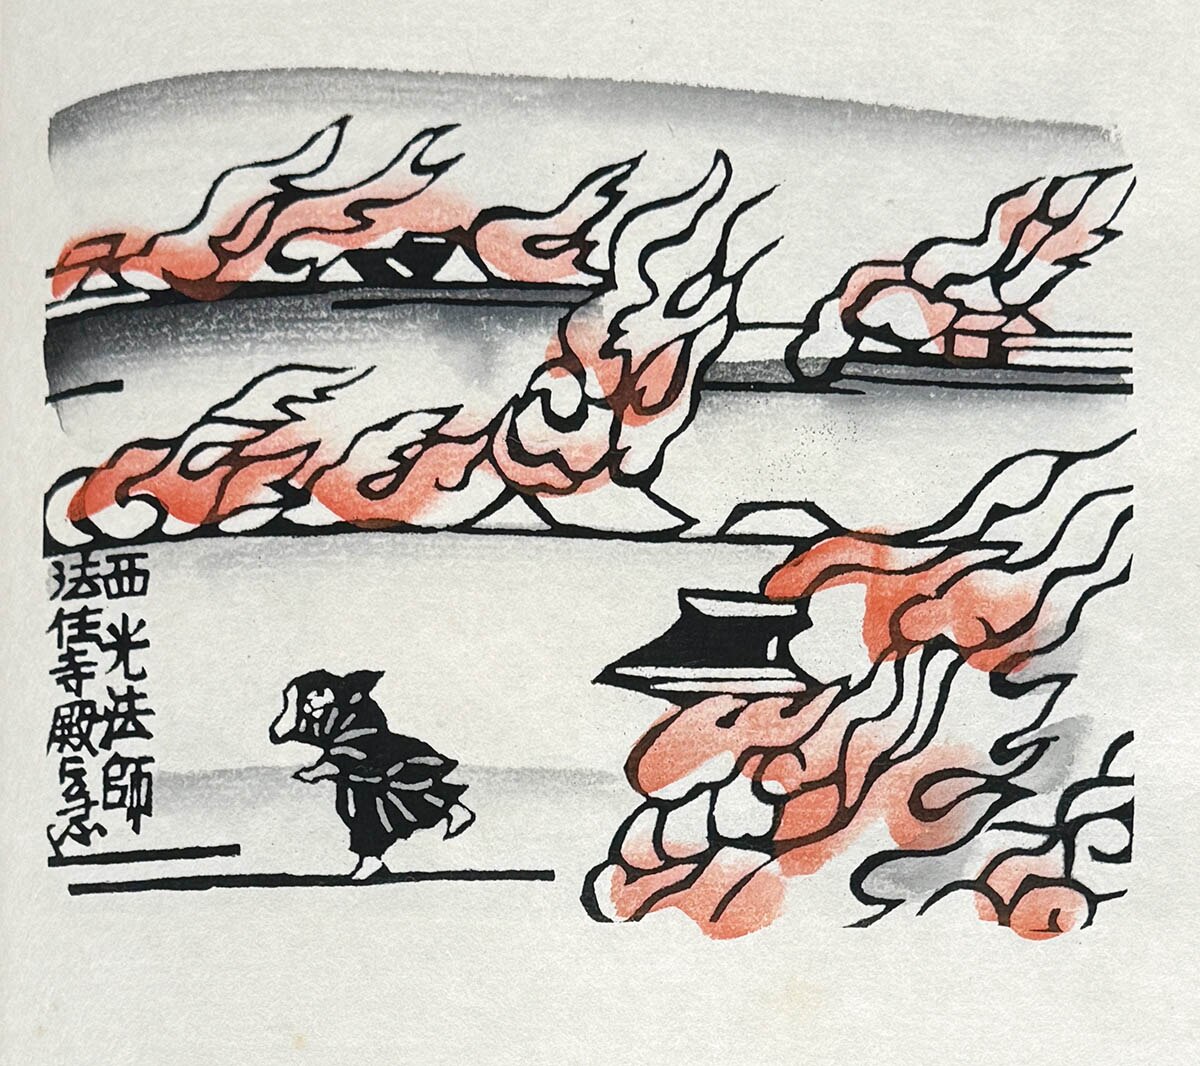 西光法師
法住寺殿